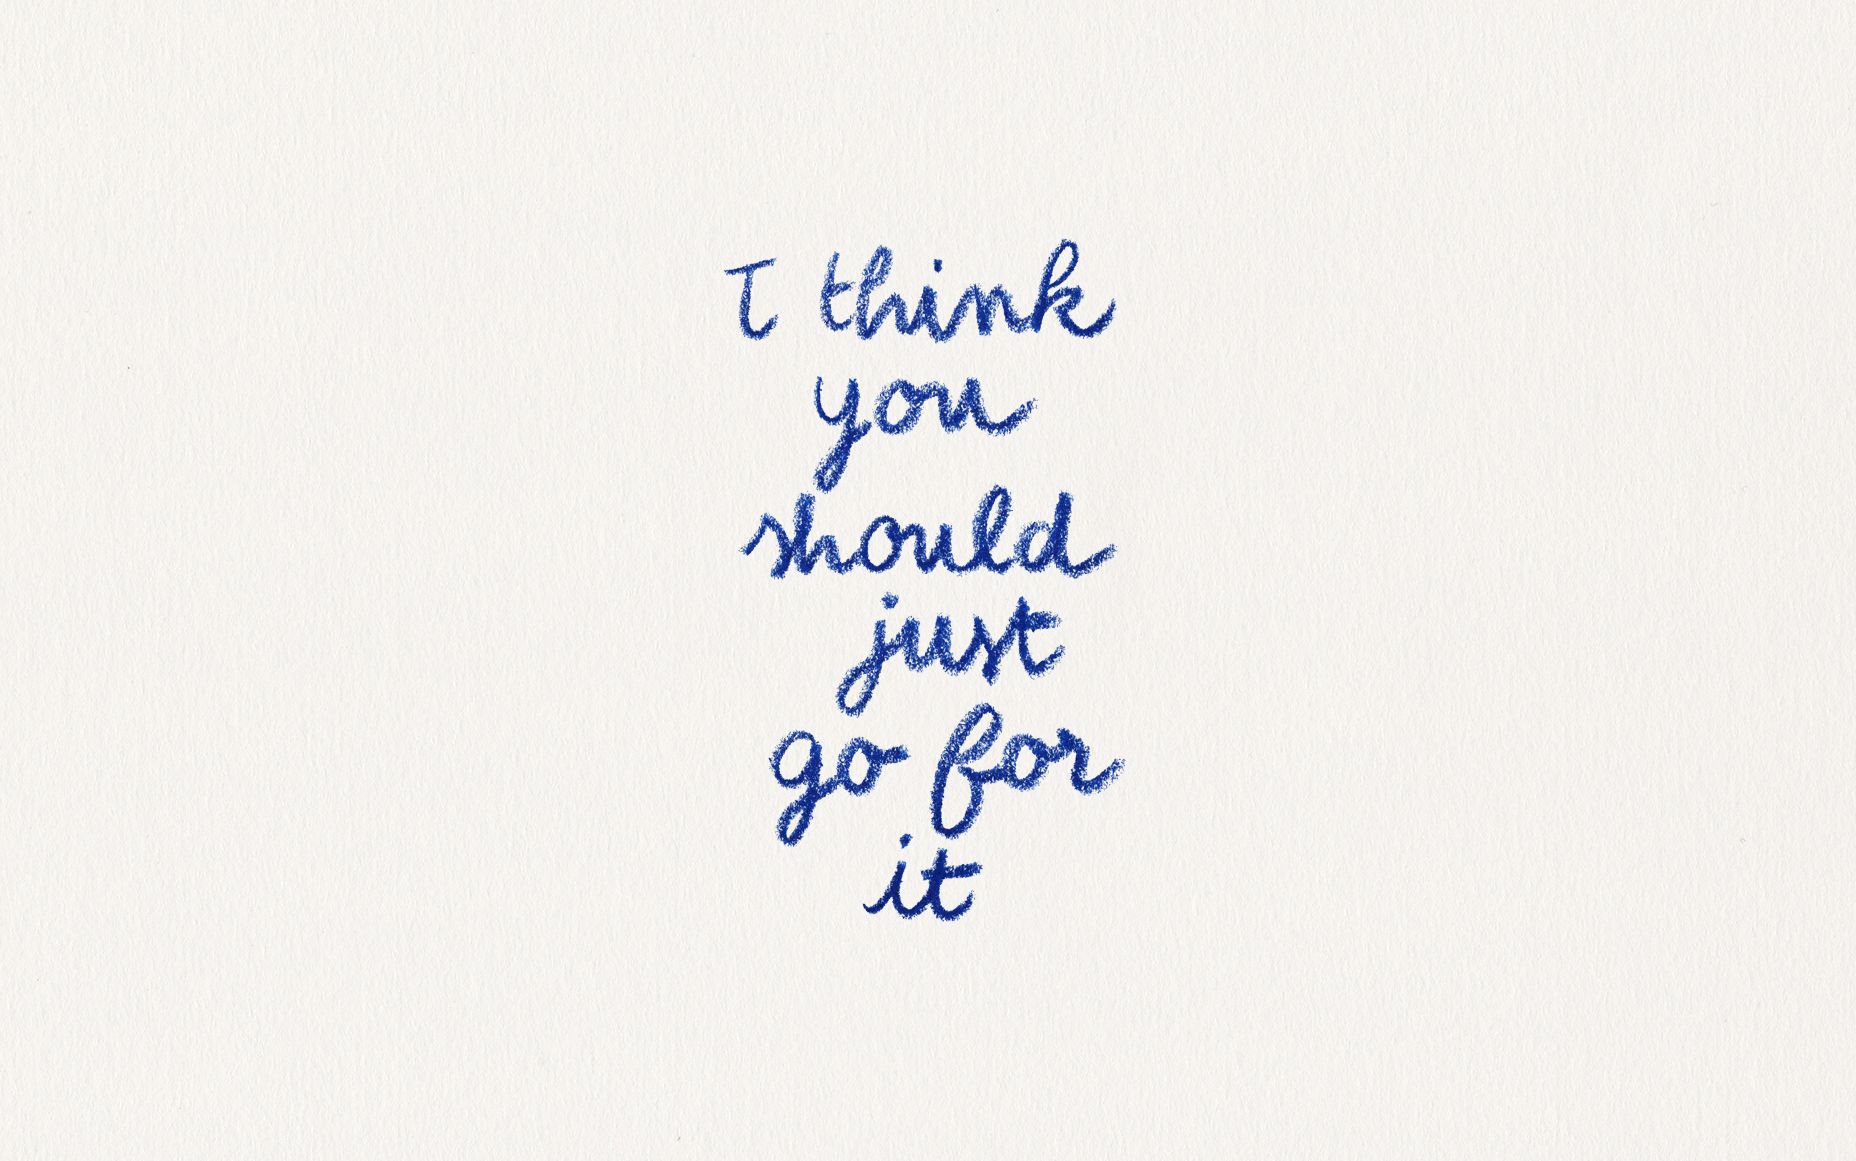 I think
you
should
just
go for
it